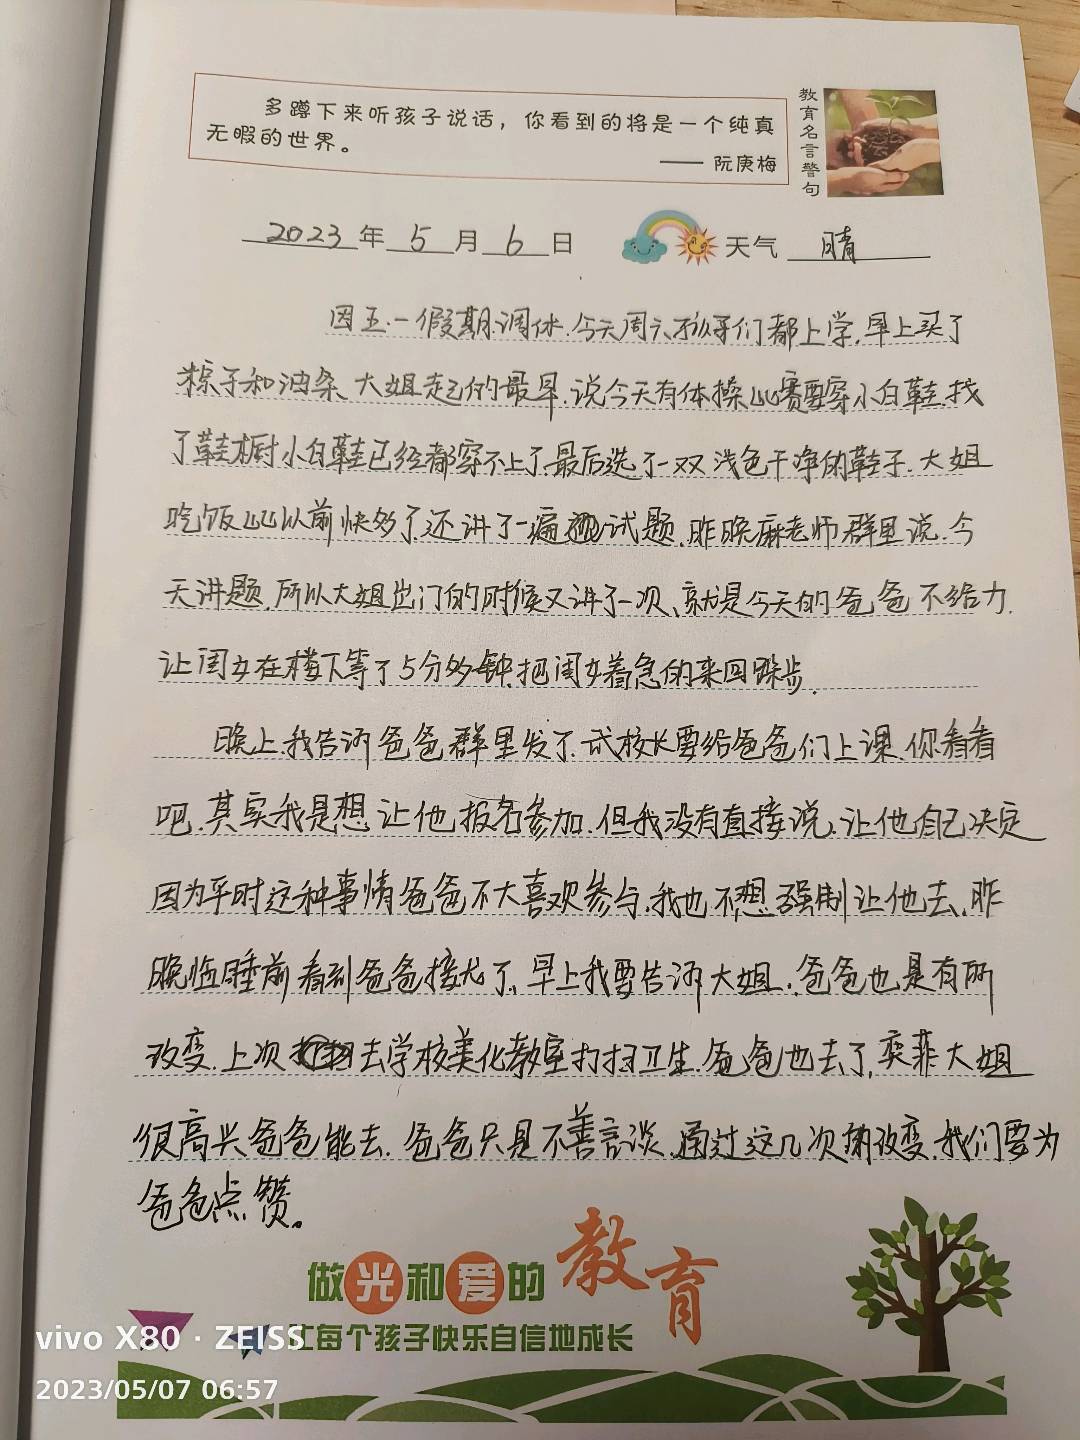 多蹲下来听孩子说话，你看到的将是一个纯真
无暇的世界。
—— 阮庚梅
教育名言警句
2023年 5 月 6 日 天气 晴
因五.一假期调休.今天周六孩子们都上学.早上买了
粽子和油条.大姐起的最早.说今天有体操比赛要穿小白鞋.找
了鞋橱小白鞋已经都穿不上了.最后选了一双浅色干净的鞋子.大姐
吃饭比以前快多了.还讲了一遍试题.昨晚麻老师群里说.今
天讲题.所以大姐出门的时候又讲了一次、就是今天的爸爸不给力.
让闺女在楼下等了5分多钟.把闺女着急的来回跺步.
晚上.我告诉爸爸群里发了.武校长要给爸爸们上课.你看看
吧.其实我是想让他报名参加.但我没有直接说.让他自己决定
因为平时这种事情爸爸不大喜欢参与.我也不想强制让他去.昨
晚临睡前看到爸爸接龙了.早上我要告诉大姐.爸爸也是有所
改变.上次去学校美化教室打扫卫生.爸爸也去了,奕菲大姐
很高兴爸爸能去.爸爸只是不善言谈.通过这几次的改变.我们要为
爸爸点赞。
做光和爱的教育
让每个孩子快乐自信地成长
vivo X80 · ZEISS
2023/05/07 06:57